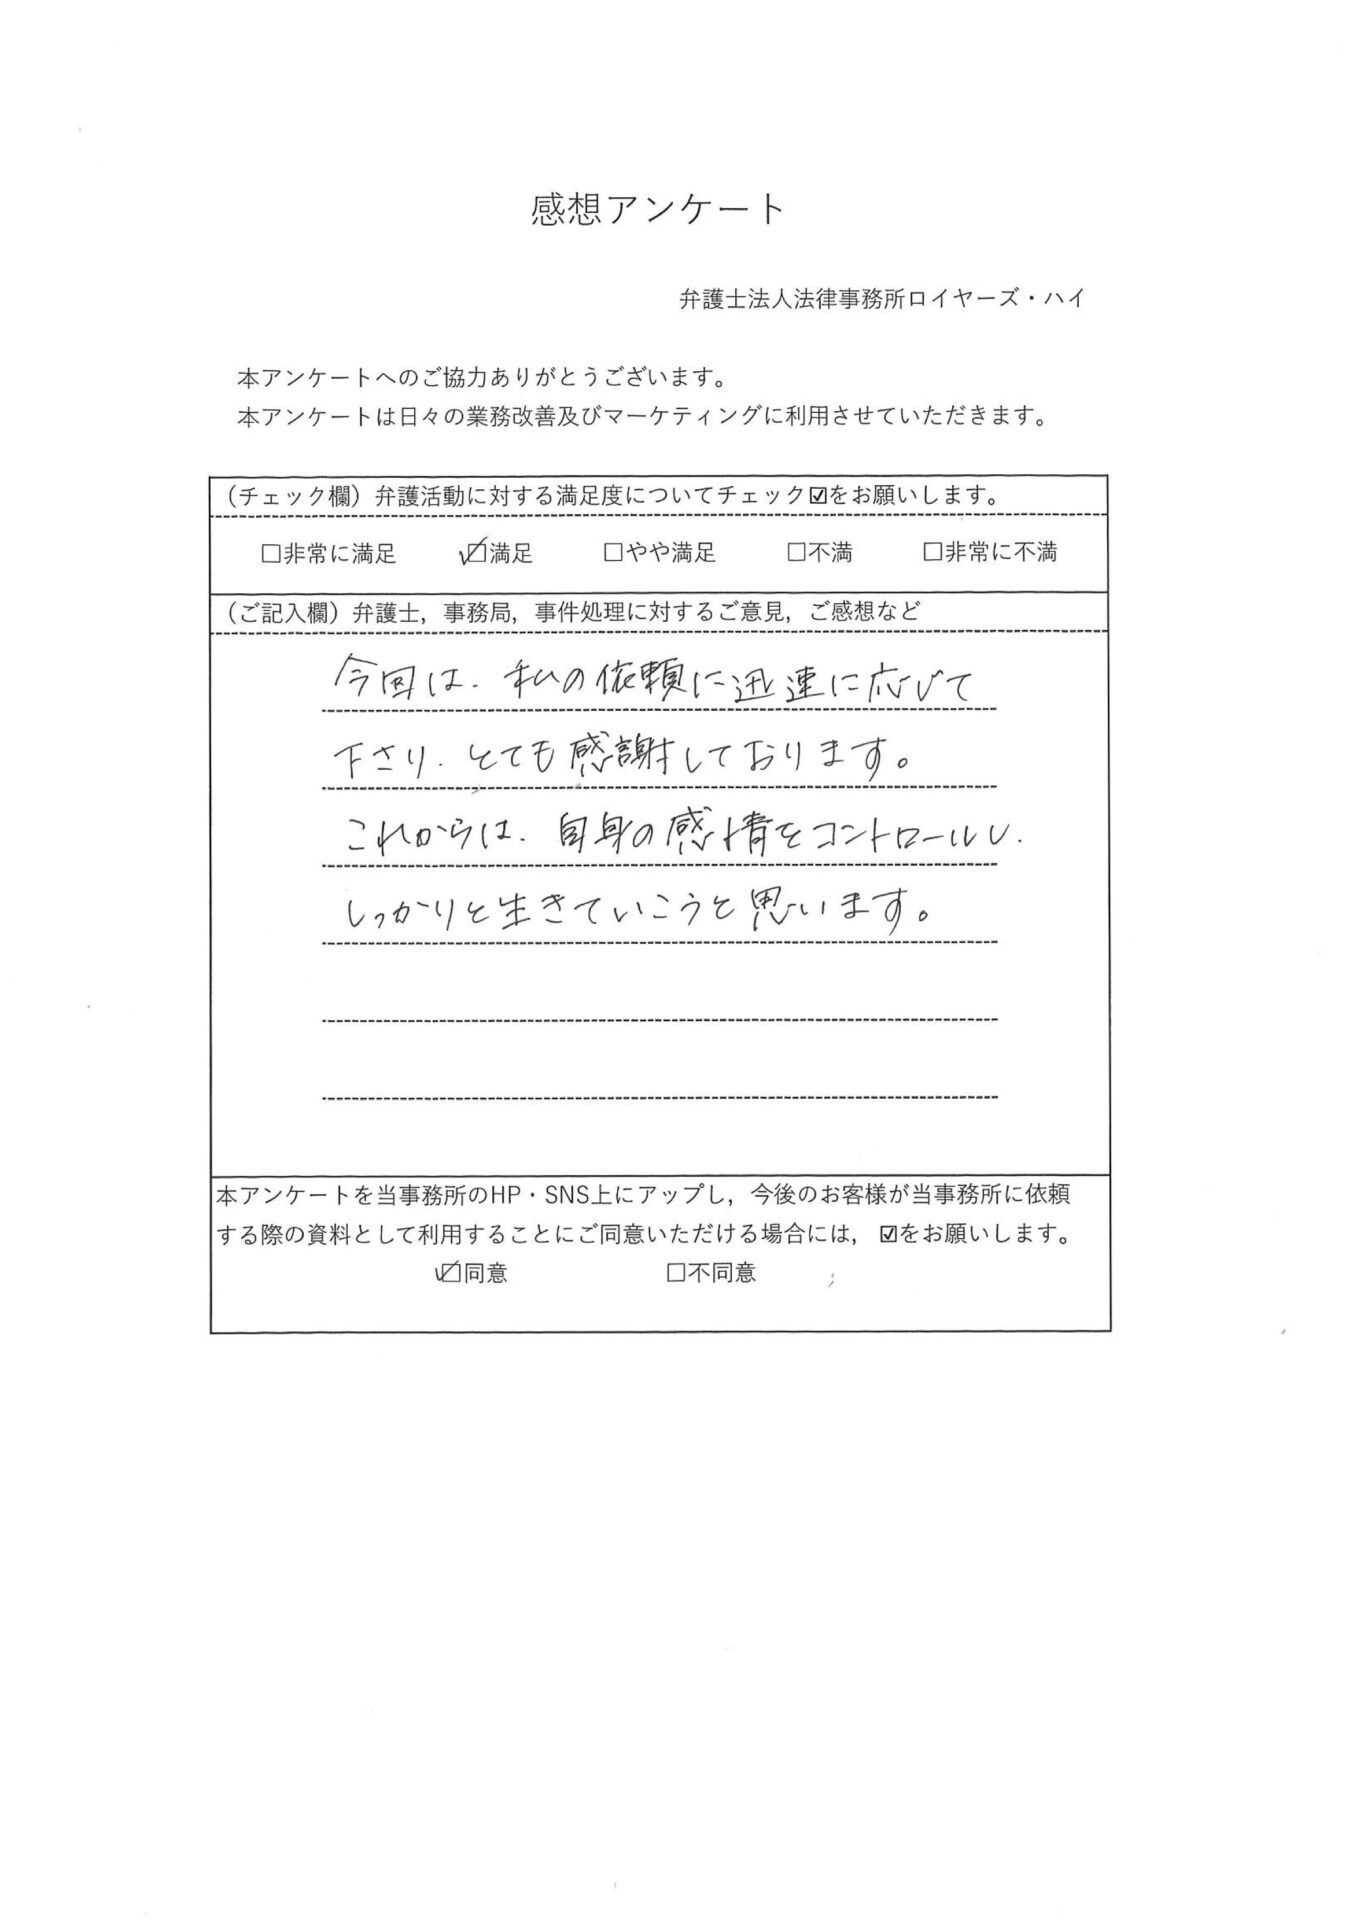 感想アンケート
弁護士法人法律事務所ロイヤーズ・ハイ
本アンケートへのご協力ありがとうございます。
本アンケートは日々の業務改善及びマーケティングに利用させていただきます。
（チェック欄）弁護活動に対する満足度についてチェック☑をお願いします。
□非常に満足 ☑満足 □やや満足 □不満 □非常に不満
（ご記入欄）弁護士，事務局，事件処理に対するご意見，ご感想など
今回は、私の依頼に迅速に応じて
下さり、とても感謝しております。
これからは、自身の感情をコントロールし、
しっかりと生きていこうと思います。
本アンケートを当事務所のHP・SNS上にアップし，今後のお客様が当事務所に依頼
する際の資料として利用することにご同意いただける場合には，☑をお願いします。
☑同意 □不同意